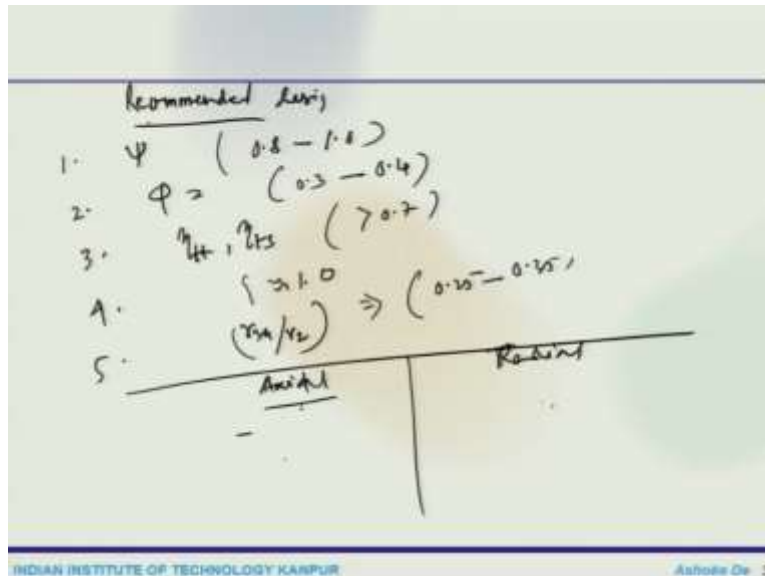 Recommended desig
1. ψ (0.8 – 1.0)
2. φ = (0.3 – 0.4)
3. η_tt, η_ts (> 0.7)
4. ≈ 1.0
5. (r_3h/r_2) ⇒ (0.25 – 0.35)
Axial Radial
–
INDIAN INSTITUTE OF TECHNOLOGY KANPUR
Ashoke De